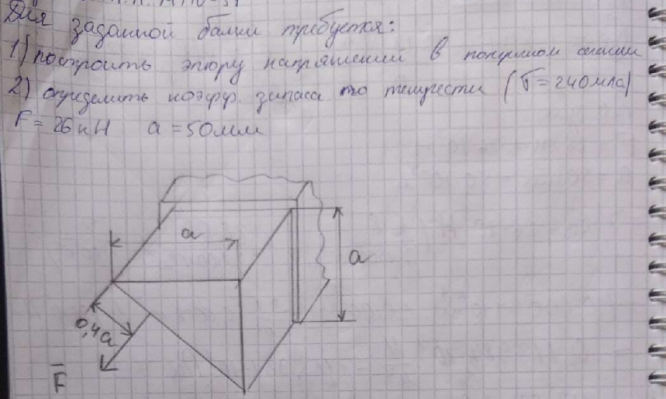 Для заданной балки требуется:
1) построить эпюру напряжений в поперечном сечении
2) определить коэфф. запаса по текучести (σ = 240 МПа)
F = 26 кН a = 50 мм
a
a
0,4a
F̅